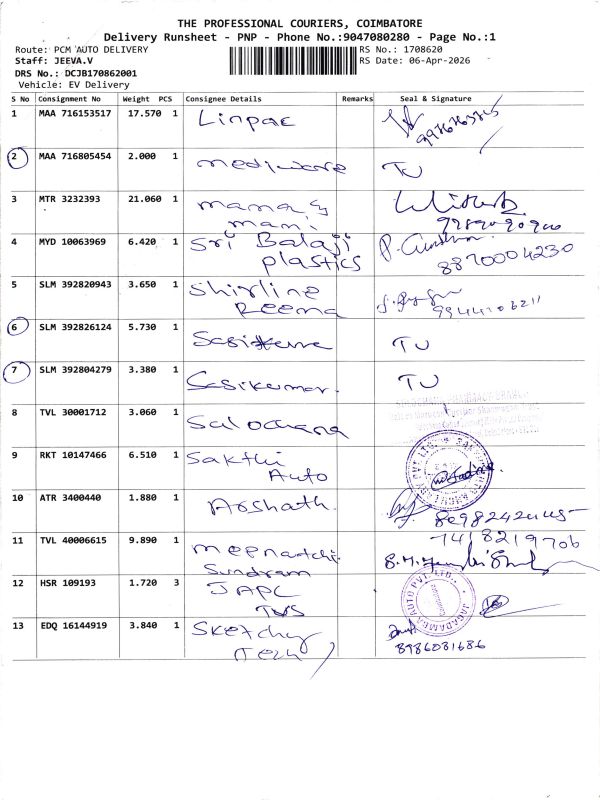 THE PROFESSIONAL COURIERS, COIMBATORE
Delivery Runsheet - PNP - Phone No.:9047080280 - Page No.:1
Route: PCM AUTO DELIVERY RS No.: 1708620
Staff: JEEVA.V RS Date: 06-Apr-2026
DRS No.: DCJB170862001
Vehicle: EV Delivery
S No Consignment No Weight PCS Consignee Details Remarks Seal & Signature
1 MAA 716153517 17.570 1 Linpac
2 MAA 716805454 2.000 1 mediware TU
3 MTR 3232393 21.060 1 mama &
mami
4 MYD 10063969 6.420 1 Sri Balaji
plastics 8870004230
5 SLM 392820943 3.650 1 Shirline
Reema
6 SLM 392826124 5.730 1 TU
7 SLM 392804279 3.380 1 Sasikumar. TU
8 TVL 30001712 3.060 1 Salochana
9 RKT 10147466 6.510 1 Sakthi
Auto
10 ATR 3400440 1.880 1 Arshath
7418219706
11 TVL 40006615 9.890 1 meenatchi
Sundram
12 HSR 109193 1.720 3 JAPL
TVS
JAGADAMBA AUTO PVT. LTD.
13 EDQ 16144919 3.840 1 Sketchy
Tech
8986081686